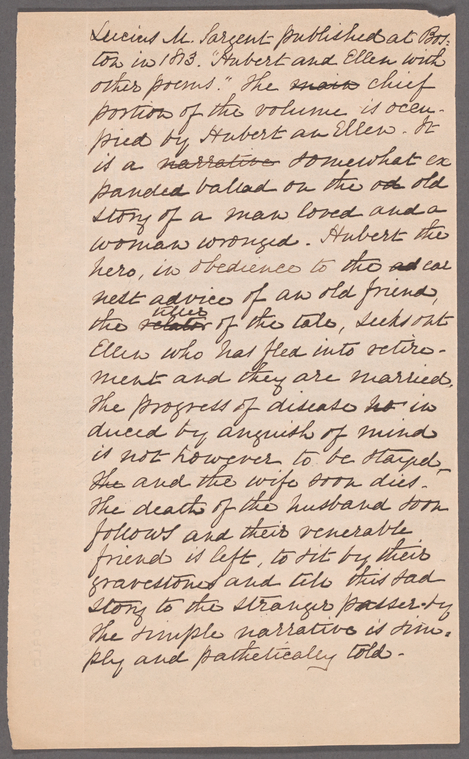 Lucius M. Sargent published at Bos-
ton in 1813. "Hubert and Ellen with
other poems." The main chief
portion of the volume is occu-
pied by Hubert an Ellen. It
is a narrative somewhat ex
panded ballad on the od old
story of a man loved and a
woman wronged. Hubert the
hero, in obedience to the ad ear
nest advice of an old friend,
teller
the relator of the tale, seeks out
Ellen who has fled into retire-
ment and they are married.
The progress of disease in
duced by anguish of mind
is not however to be stayed,
The and the wife soon dies.
The death of the husband soon
follows and their venerable
friend is left, to sit by their
gravestones and tell this sad
story to the stranger passer-by
The simple narrative is sim-
ply and pathetically told.